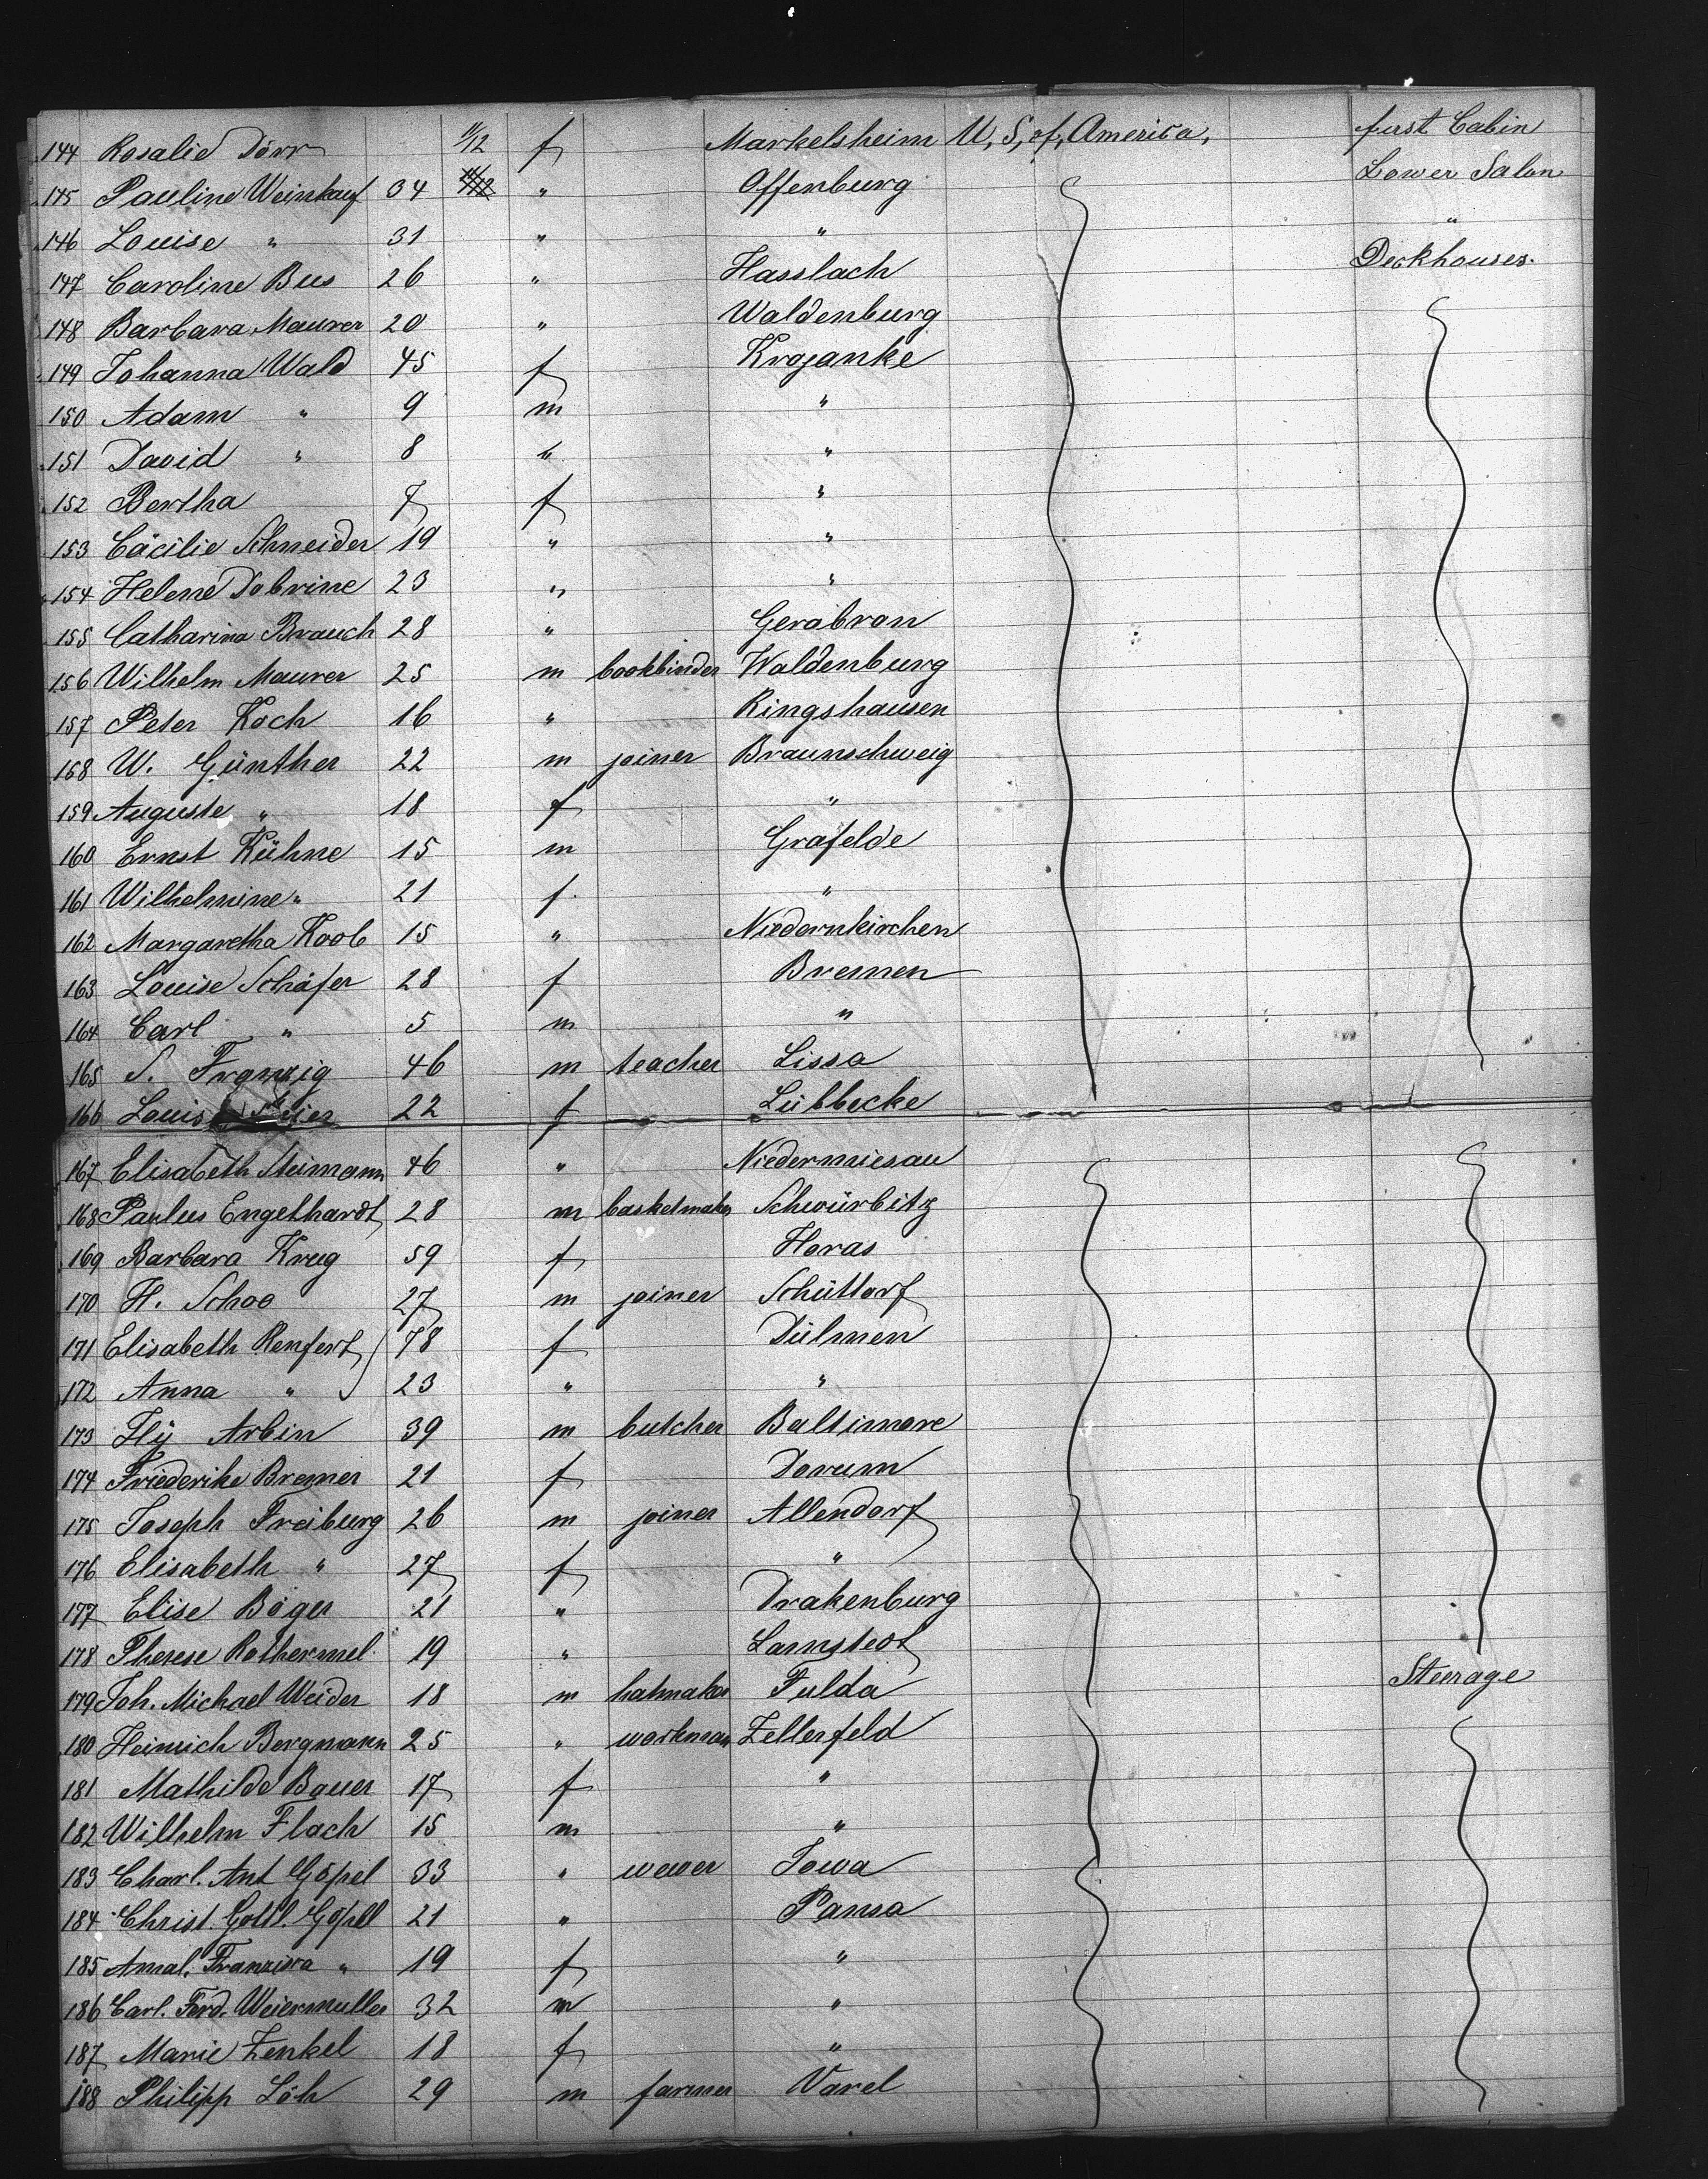 144 Rosalie Dörr 11/12 f Markelsheim U, S, of, America, first Cabin
145 Pauline Weinkauf 34 " Offenburg Lower Salon
146 Louise " 31 " " "
147 Caroline Bus 26 " Hasslach Deckhouses.
148 Barbara Maurer 20 " Waldenburg
149 Johanna Wald 45 f Krojanke
150 Adam " 9 m "
151 David " 8 " "
152 Bertha 7 f "
153 Cäcilie Schneider 19 " "
154 Helene Dobrine 23 " "
155 Catharina Brauch 28 " Gerabron
156 Wilhelm Maurer 25 m bookbinder Waldenburg
157 Peter Koch 16 " Ringshausen
158 W. Günther 22 m joiner Braunschweig
159 Auguste " 18 f "
160 Ernst Kühne 15 m Grafelde
161 Wilhelmine " 21 f. "
162 Margaretha Koob 15 " Niedernkirchen
163 Louise Schäfer 28 f Bremen
164 Carl " 5 m "
165 S. 46 m teacher Lissa
166 22 f Lübbecke
167 Elisabeth Steimann 46 " Niedermiesau
168 Paulus Engelhardt 28 m basketmaker Schwürbitz
169 Barbara Krug 59 f Horas
170 H. Schoo 27 m joiner Schüttorf
171 Elisabeth Renfert 78 f Dülmen
172 Anna " 23 " "
173 Hÿ Arbin 39 m butcher Baltimore
174 Friederike Bremer 21 f Dorum
175 Joseph Freiburg 26 m joiner Allendorf
176 Elisabeth " 27 f "
177 Elise Böger 21 " Drakenburg
178 Therese Rothermel 19 " Lamstedt
179 Joh. Michael Weider 18 m hatmaker Fulda Steerage
180 Heinrich Bergmann 25 " workman Zellerfeld
181 Mathilde Bauer 17 f "
182 Wilhelm Flach 15 m "
183 Charl. Ant Göpel 33 " wewer Iowa
184 Christ. Gottl. Göpel 21 " Pansa
185 Amal. Franziska " 19 f "
186 Carl. Ferd. Weiermuller 32 m "
187 Marie Zenkel 18 f "
188 Philipp Löh 29 m farmer Varel